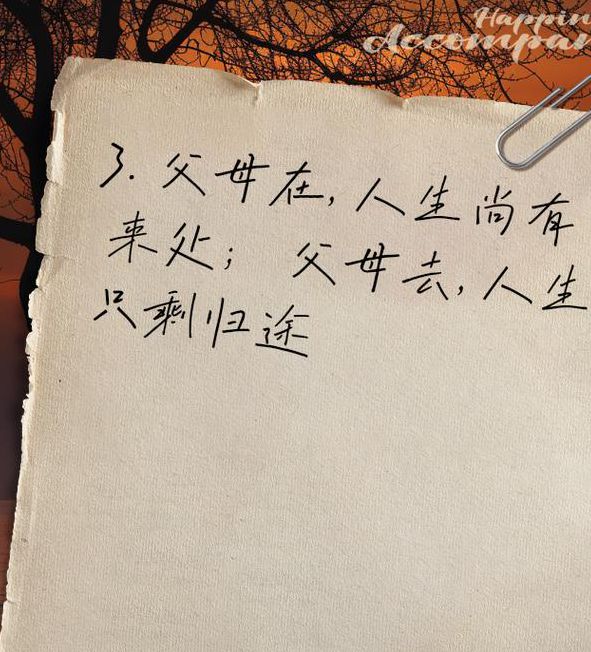 Happin
Accompan
3. 父母在,人生尚有
来处; 父母去,人生
只剩归途